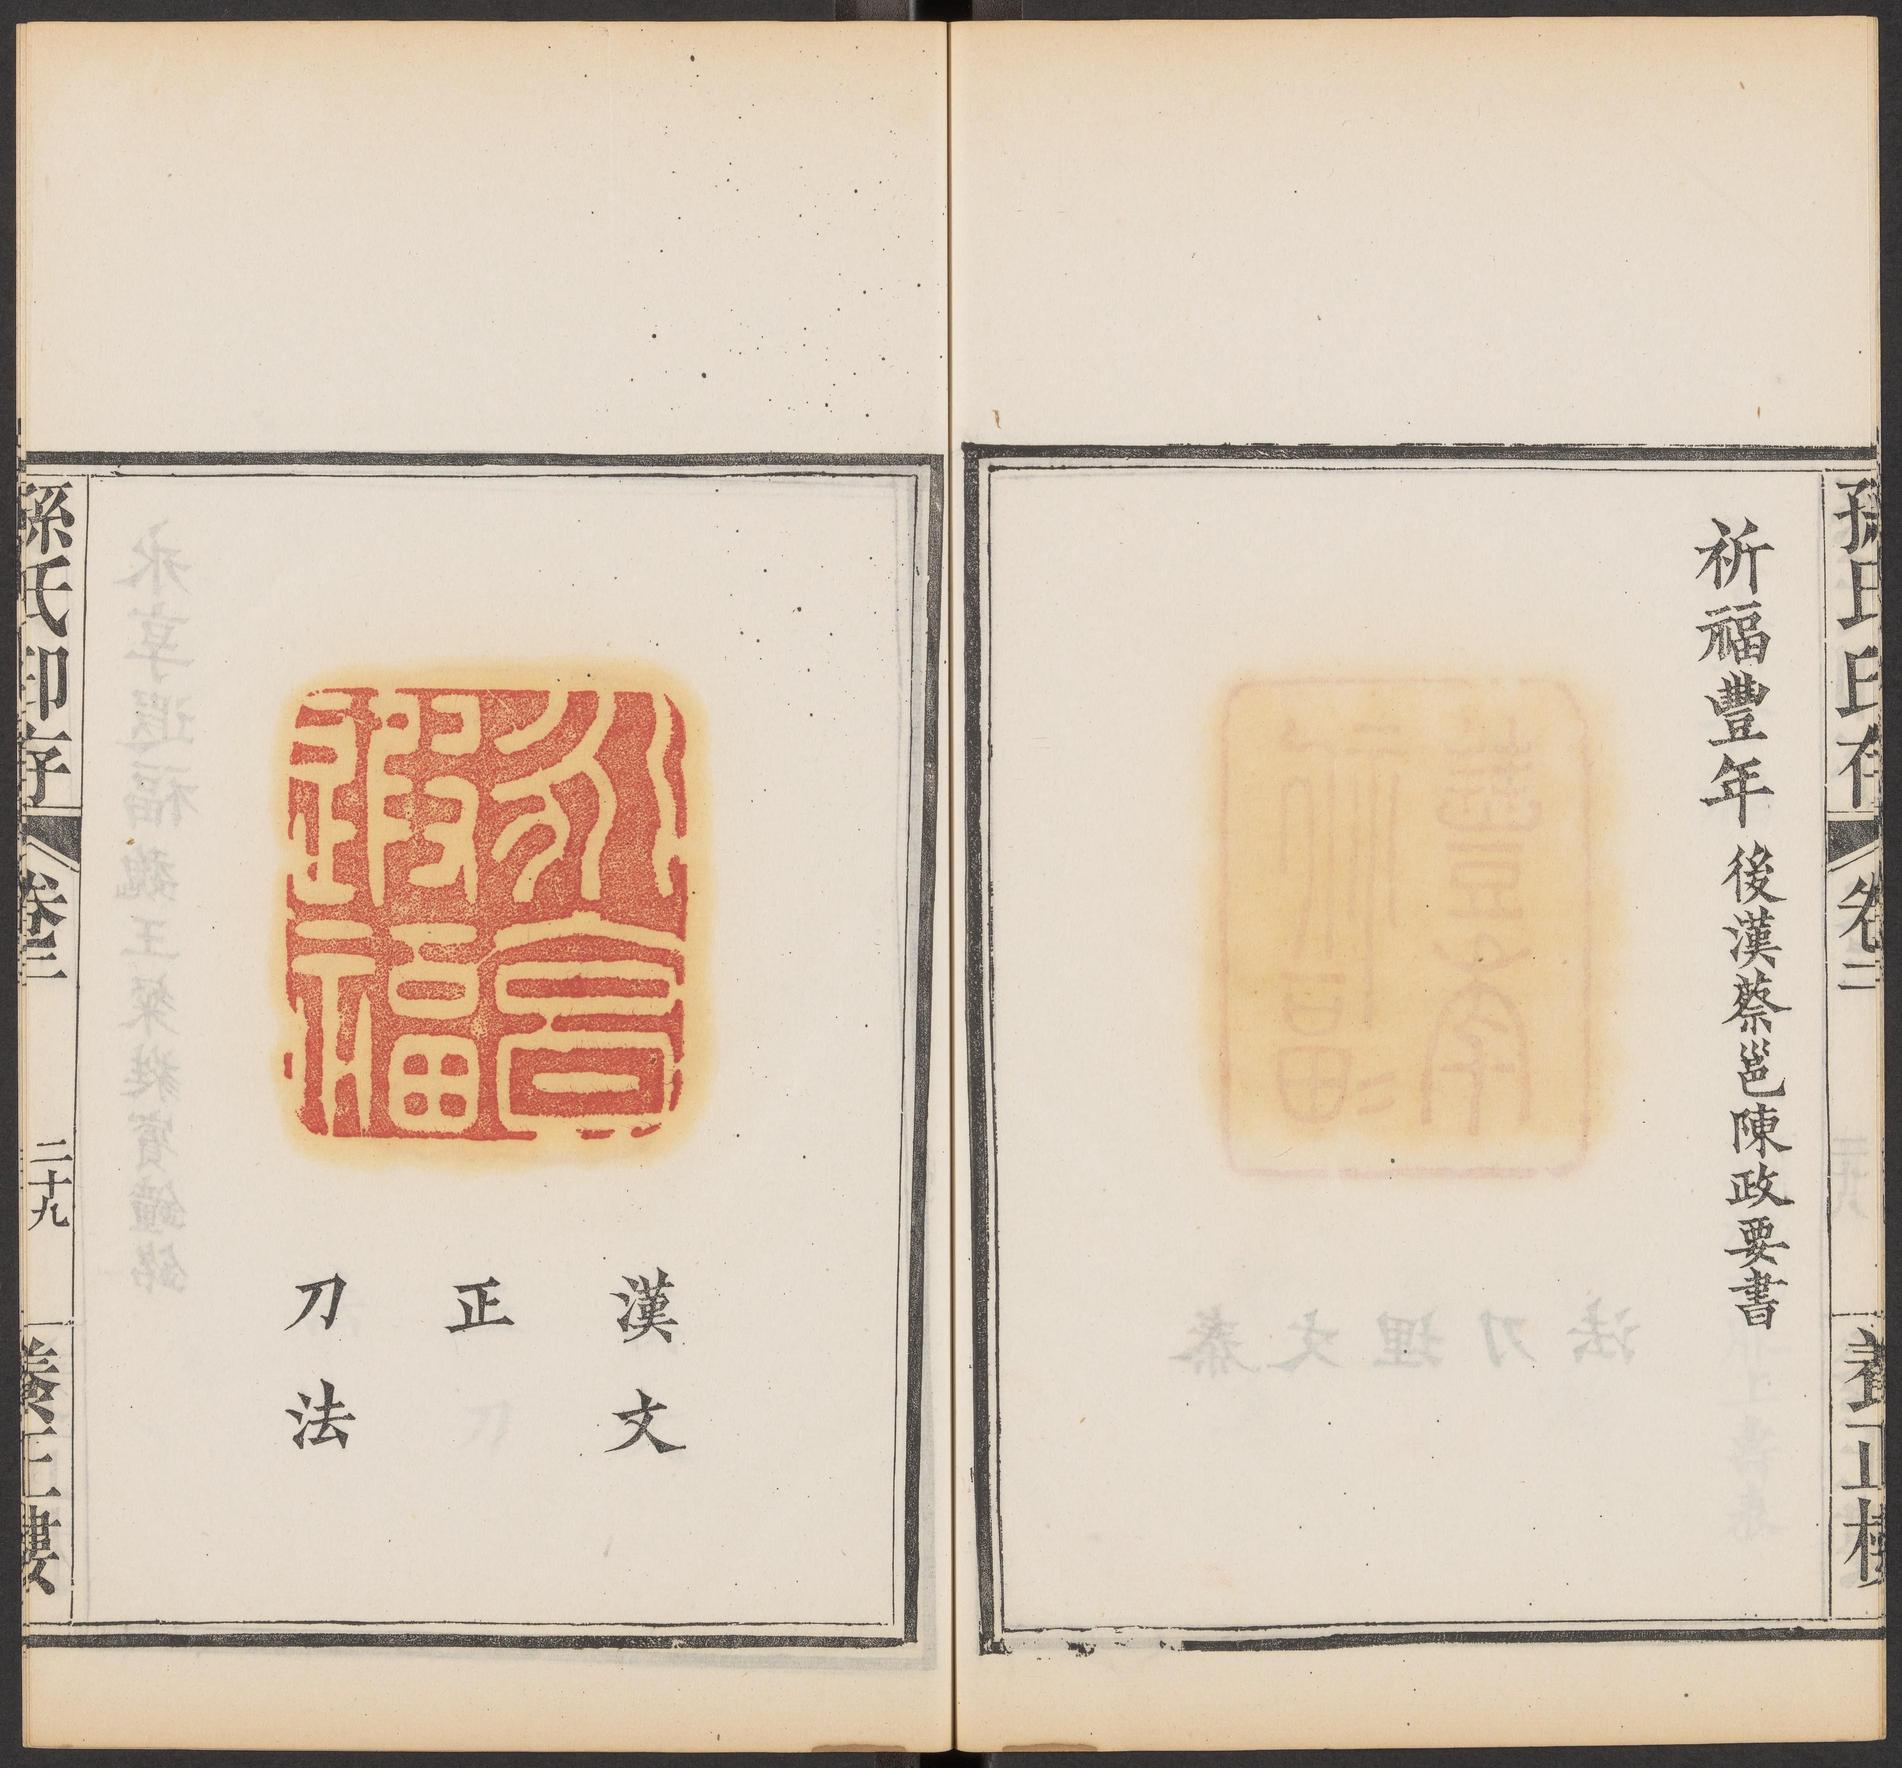 孫氏印存
卷三
養正樓
祈福豐年 後漢蔡邕陳政要書
永享遐福
漢文
正
刀法
孫氏印存
卷三
二十九
養正樓